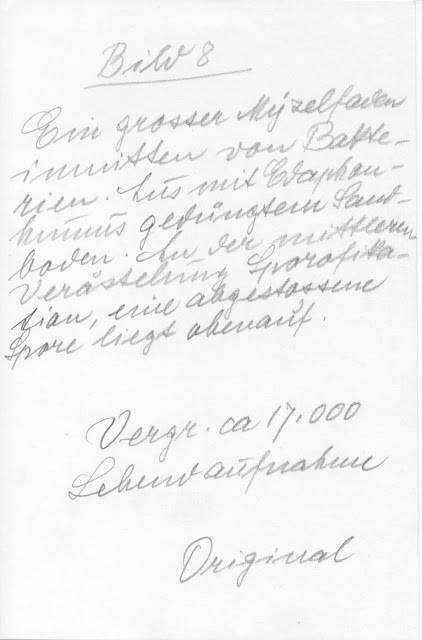 Bild 8
Ein grosser Myzelfaden
inmitten von Bakte-
rien. Aus mit Edaphon-
humus gedüngtem Sand-
boden. An der mittleren
Verästelung Sporofikta-
tion, eine abgestossene
Spore liegt obenauf.
Vergr. ca 17.000
Lebendaufnahme
Original